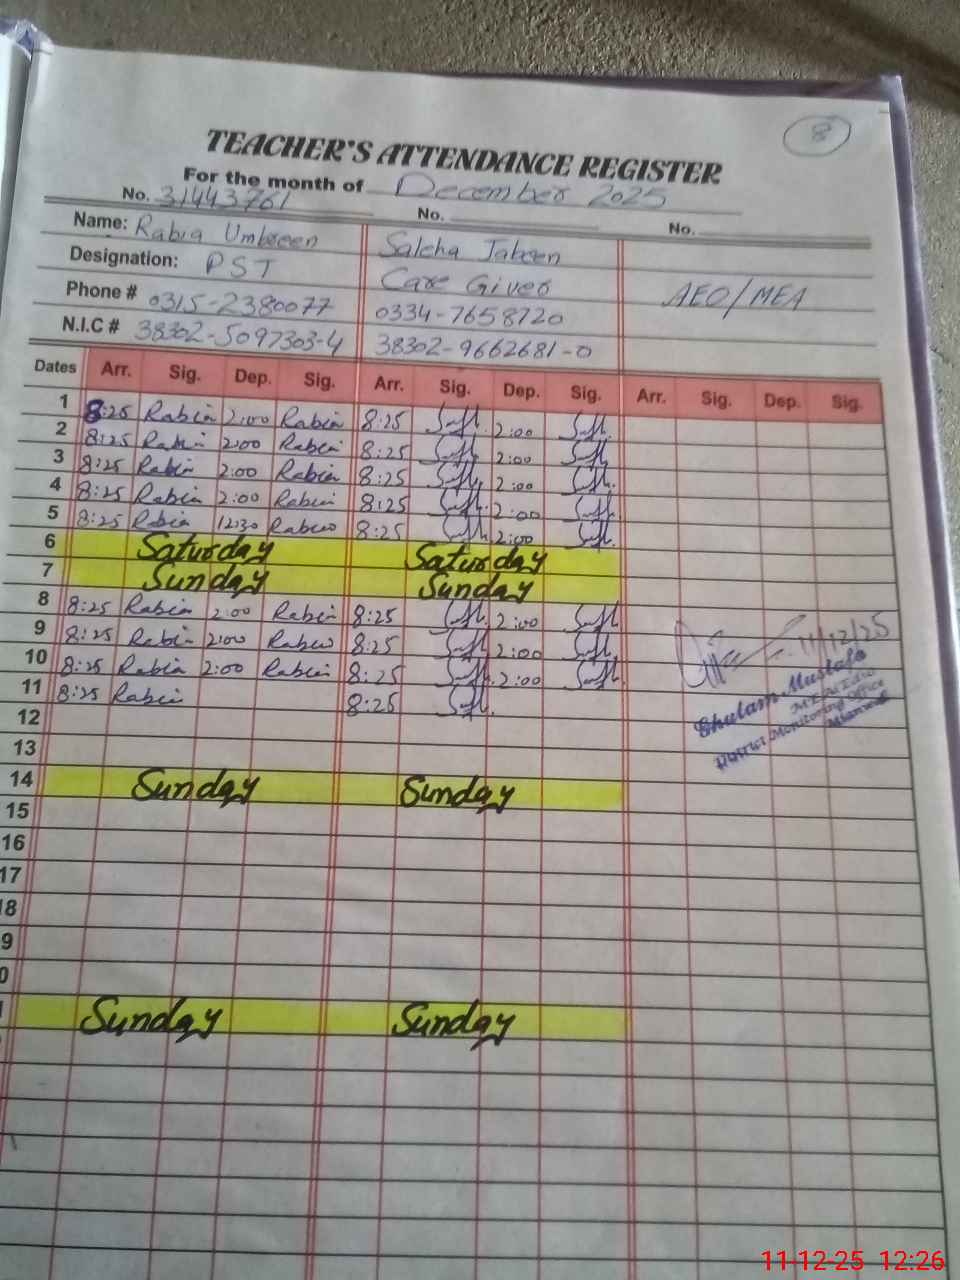 8
TEACHER'S ATTENDANCE REGISTER
For the month of December 2025
No. 31443761 No. No.
Name: Rabia Umbreen Saleha Jabeen
Designation: PST Care Giver AEO/MEA
Phone # 0315-2380077 0334-7658720
N.I.C # 38302-5097303-4 38302-9662681-0
Dates Arr. Sig. Dep. Sig. Arr. Sig. Dep. Sig. Arr. Sig. Dep. Sig.
1 8:25 Rabia 2:00 Rabia 8:25 2:00
2 8:25 Rabia 2:00 Rabia 8:25 2:00
3 8:25 Rabia 2:00 Rabia 8:25 2:00
4 8:25 Rabia 2:00 Rabia 8:25 2:00
5 8:25 Rabia 12:30 Rabia 8:25 2:00
6 Saturday Saturday
7 Sunday Sunday
8 8:25 Rabia 2:00 Rabia 8:25 2:00
9 8:25 Rabia 2:00 Rabia 8:25 2:00
10 8:25 Rabia 2:00 Rabia 8:25 2:00
11 8:25 Rabia 8:25
11/12/25
Ghulam Mustafa
District Monitoring Office
Mianwali
12
13
14 Sunday Sunday
15
16
17
18
9
0
Sunday Sunday
11-12-25 12:26